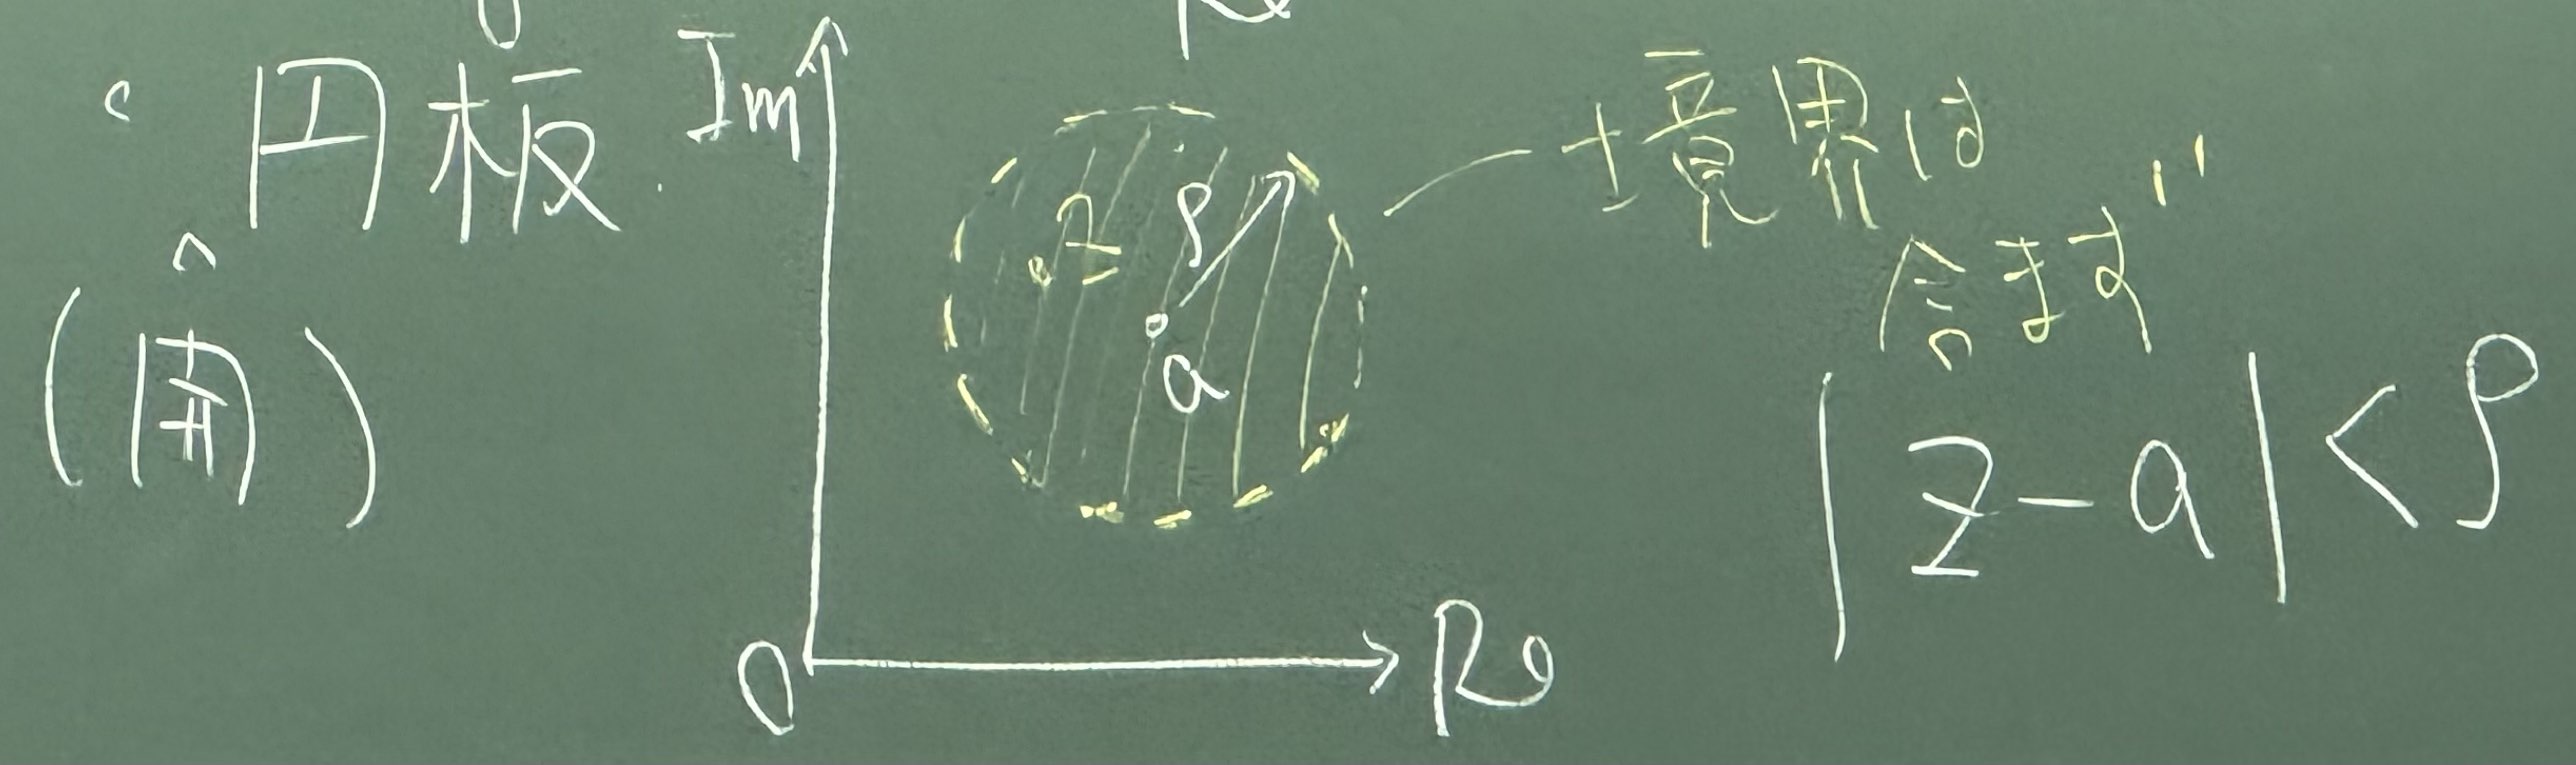 円板
(開)
Im
z
ρ
a
0
Re
境界は
含まず
|z-a|<ρ